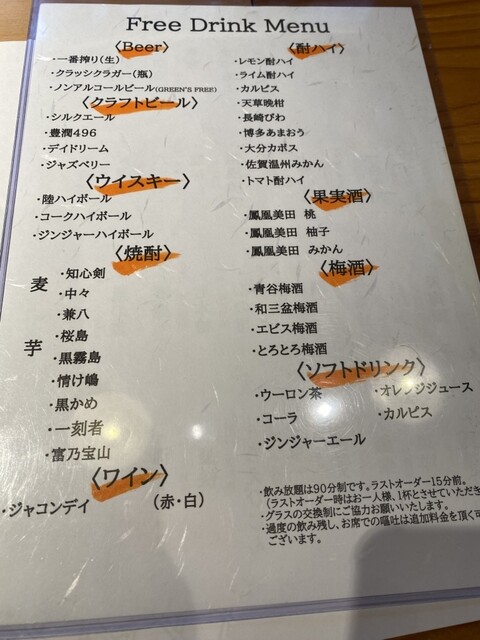 Free Drink Menu
〈Beer〉
・一番搾り(生)
・クラッシクラガー(瓶)
・ノンアルコールビール(GREEN'S FREE)
〈クラフトビール〉
・シルクエール
・豊潤496
・デイドリーム
・ジャズベリー
〈ウイスキー〉
・陸ハイボール
・コークハイボール
・ジンジャーハイボール
〈焼酎〉
麦
・知心剣
・中々
・兼八
芋
・桜島
・黒霧島
・情け嶋
・黒かめ
・一刻者
・富乃宝山
〈ワイン〉
・ジャコンデイ (赤・白)
〈酎ハイ〉
・レモン酎ハイ
・ライム酎ハイ
・カルピス
・天草晩柑
・長崎びわ
・博多あまおう
・大分カボス
・佐賀温州みかん
・トマト酎ハイ
〈果実酒〉
・鳳凰美田 桃
・鳳凰美田 柚子
・鳳凰美田 みかん
〈梅酒〉
・青谷梅酒
・和三盆梅酒
・エビス梅酒
・とろとろ梅酒
〈ソフトドリンク〉
・ウーロン茶 ・オレンジジュース
・コーラ ・カルピス
・ジンジャーエール
・飲み放題は90分制です。ラストオーダー15分前。
(ラストオーダー時はお一人様、1杯とさせていただき
・グラスの交換制にご協力お願いいたします。
・過度の飲み残し、お席での嘔吐は追加料金を頂く可
ございます。